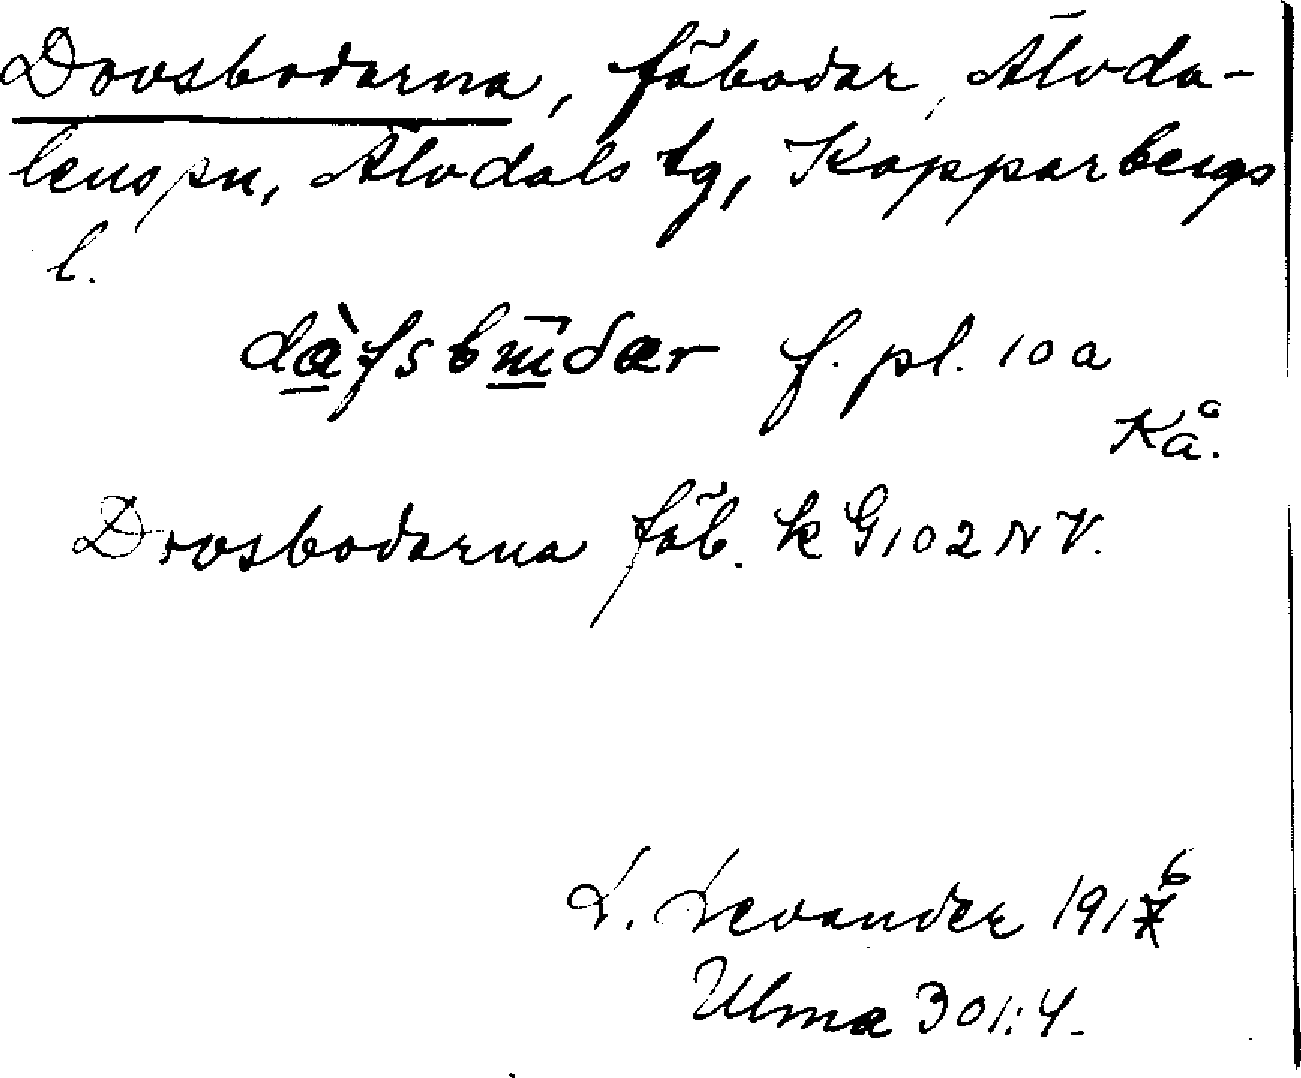 Dovsbodarna, fäbodar, Älvda-
lens sn, Älvdals tg, Kopparbergs
l.
f. pl. 10 a
Kå.
Drovsbodarna fäb. k G 102 NV.
L. Levander 1916
Ulma 301:4.